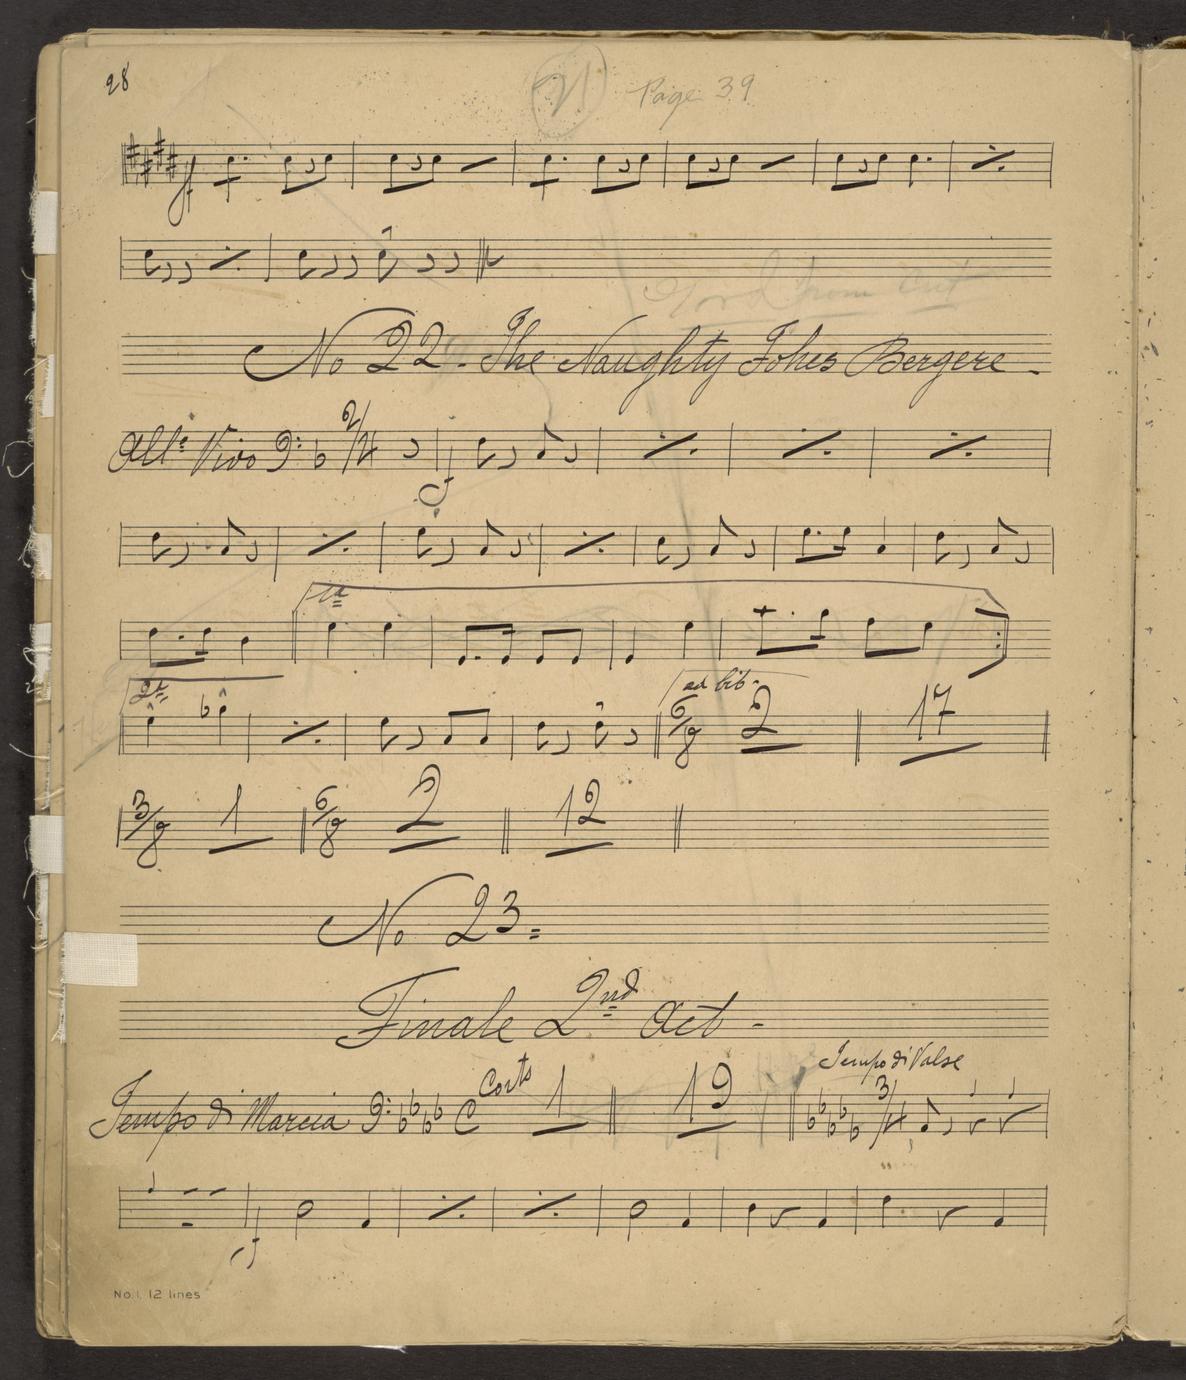 28
21 Page 39
f
No 22. The Naughty Fohes Bergere.
Allº Vivo 2/4
f
1ª
2ª ad lib.
6/8 2 17
3/8 1 6/8 2 12
No 23.
Finale 2nd Act.
Tempo di Valse
Tempo di Marcia C 1 19 3/4
f
No. 1. 12 lines